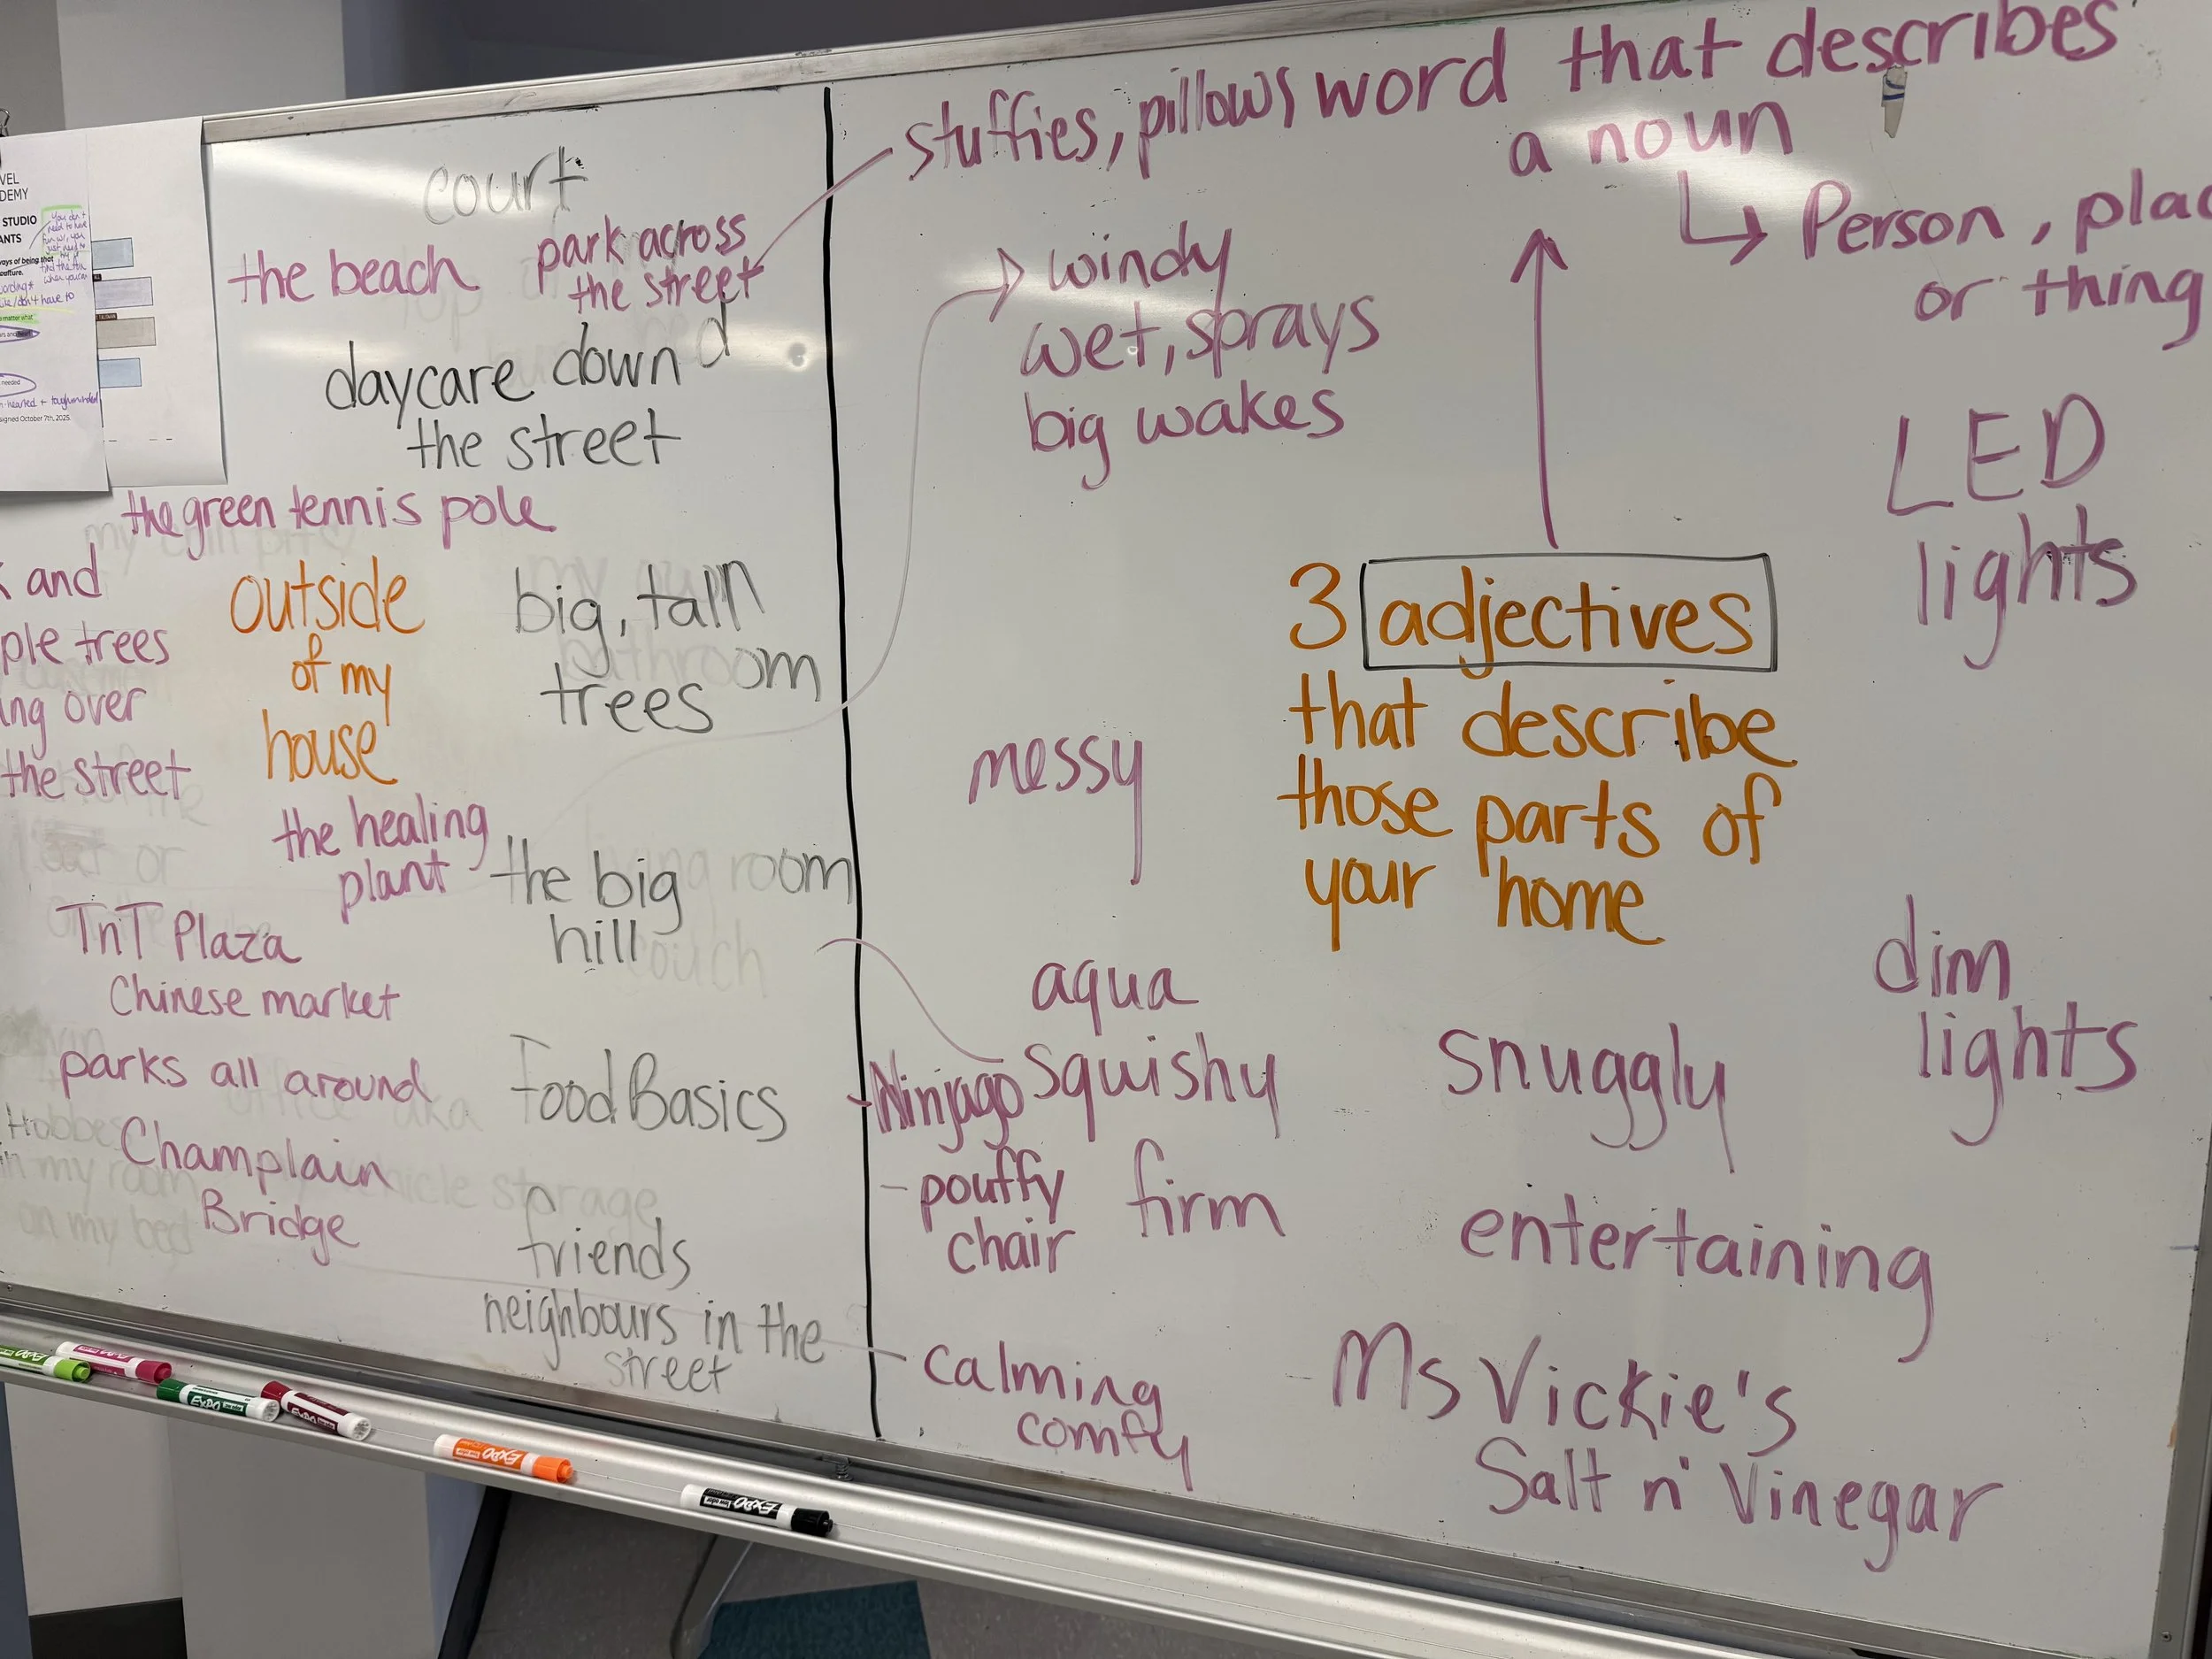 court
the beach
park across
the street
daycare down
the street
the green tennis pole
and
trees
over
the street
outside
of my
house
big, tall
trees
om
the healing
plant
the big
hill
room
couch
TnT Plaza
Chinese market
parks all around
Food Basics
Champlain
Bridge
Hobbes
in my room
on my bed
storage
friends
neighbours in the
street
stuffies, pillows
word that describes
a noun
Person, plac
or thing
windy
wet, sprays
big wakes
LED
lights
3 adjectives
that describe
those parts of
your home
messy
aqua
squishy
- Ninjago
- pouffy
chair
firm
snuggly
dim
lights
entertaining
calming
comfy
Ms Vickie's
Salt n' Vinegar
VEL
DEMY
STUDIO
ANTS
ways of being that
signed October 7th, 2025.
EXPO
EXPO
EXPO
EXPO
EXPO
EXPO